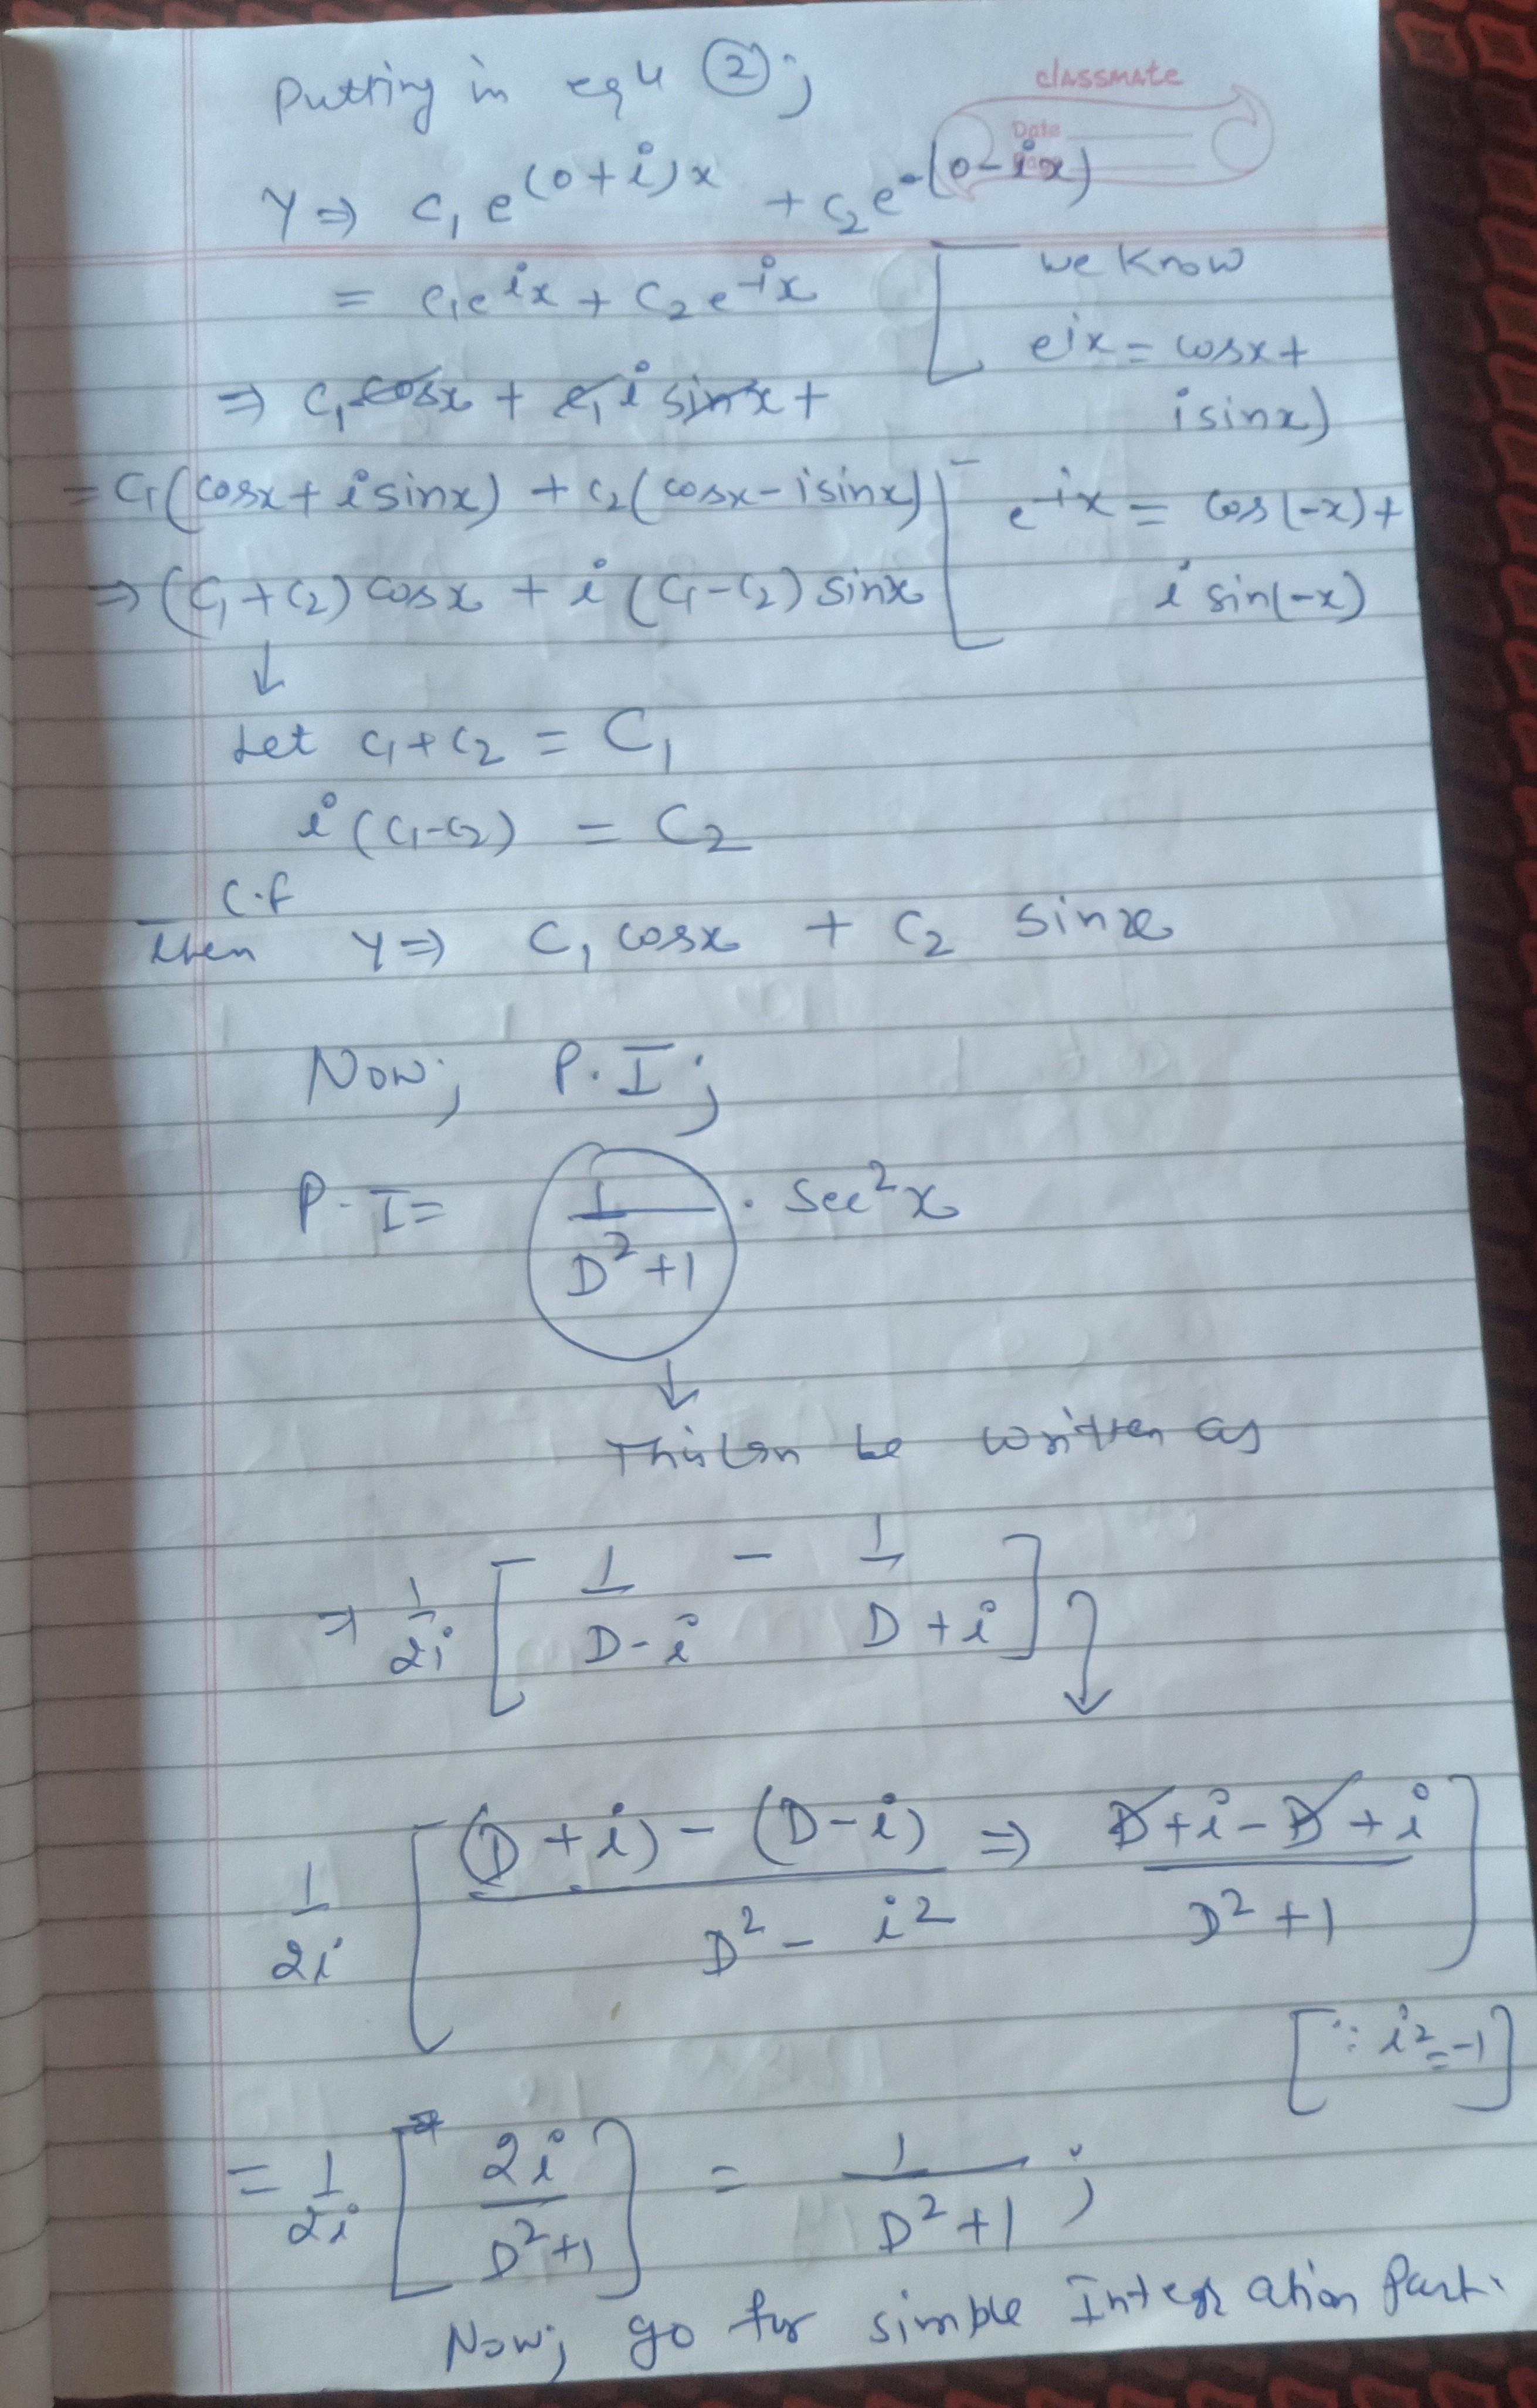 classmate
Date
Page
Putting in eqn ②;
Y ⇒ c₁ e^(0+i)x + c₂e^-(0-ix)
= c₁e^ix + c₂e^-ix
[ we know
eix = cosx +
isinx)
⇒ c₁ cosx + c₁ i sinx +
= c₁(cosx + i sinx) + c₂(cosx - isinx)
[ e^-ix = cos(-x) +
i sin(-x)
⇒ (c₁+c₂) cosx + i (c₁-c₂) sinx
↓
Let c₁+c₂ = C₁
i (c₁-c₂) = C₂
C.f
Then Y ⇒ C₁ cosx + C₂ sinx
Now; P.I;
P.I = 1/(D²+1) . Sec²x
↓
This can be written as
⇒ 1/2i [ 1/(D-i) - 1/(D+i) ]
1/2i [ ((D+i) - (D-i))/(D² - i²) ⇒ (D+i-D+i)/(D²+1) ]
[∵ i²=-1]
= 1/2i [ 2i/(D²+1) ] = 1/(D²+1) ;
Now; go for simple Integration Part.